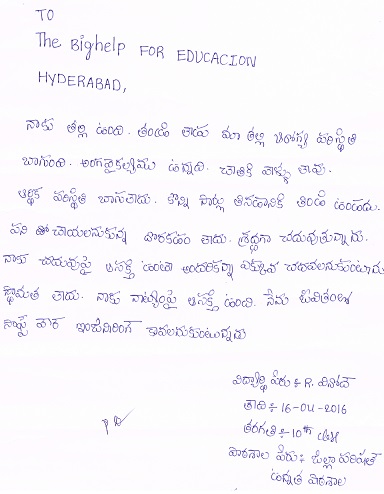 TO
The Bighelp FOR EDUCACION
HYDERABAD,
నాకు తల్లి ఉంది. తండ్రి లేడు మా తల్లి ఆరోగ్య పరిస్థితి
బాగుంది. అంగవైకల్యము ఉన్నది. చాతికి వేళ్ళు లేవు.
ఆర్థిక పరిస్థితి బాగలేదు. కొన్ని సార్లు తినడానికి తిండి ఉండదు.
పని చేయాలనుకున్న దొరకడం లేదు. శ్రద్ధగా చదువుతున్నాను.
నాకు చదువుపై ఆసక్తి ఉంది అందరికన్నా ఎక్కువ చదవాలనుకుంటున్నాను
స్థోమత లేదు. నాకు నాట్యంపై ఆసక్తి ఉంది. నేను జీవితంలో
సాఫ్ట్ వేర్ ఇంజనీరింగ్ కావాలనుకుంటున్నాను
విద్యార్థి పేరు : R.
తేది : 16-04-2016
తరగతి : 10th class
పాఠశాల పేరు : జిల్లా పరిషత్
ఉన్నత పాఠశాల